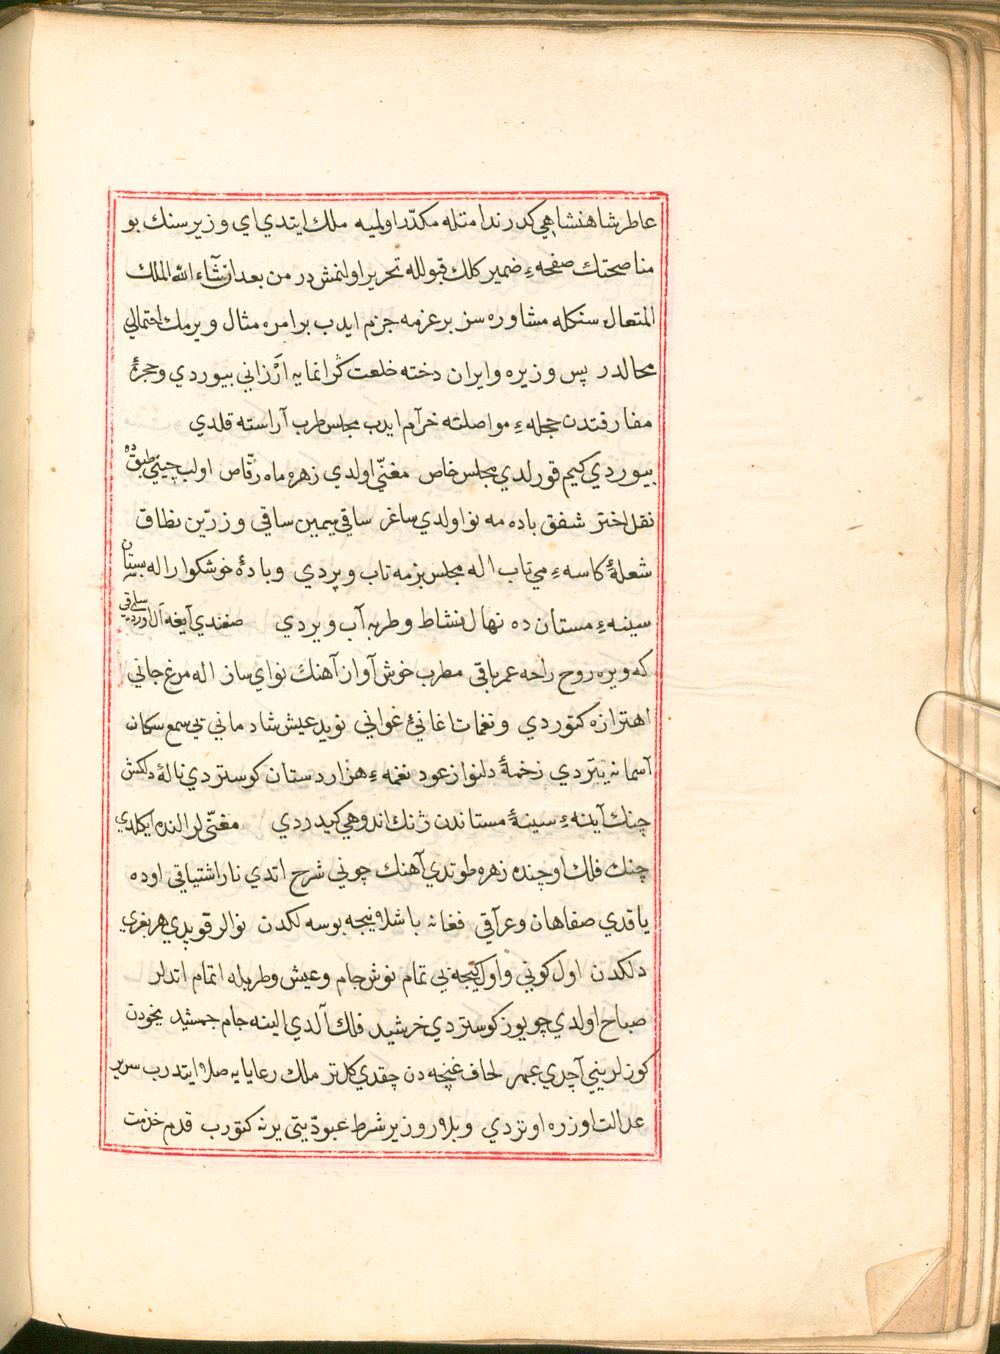 عاطر شاهنشاهي كدر ندامتله مكدّر اولميه ملك ايتدي اي وزير سنك بو
مناصحتك صفحهء ضمير كلك قبولله تحرير اولنمش در من بعد ان شآء الله الملك
المتعال سنكله مشاوره سز بر عزمه جزم ايدب بر امره مثال ويرمك احتمالي
محالدر پس وزيره و ايران دخته خلعت گرانمايه ارزاني بيوردي و حجرهٔ
مفارقتدن حجلهء مواصلته خرآم ايدب مجلس طرب آراسته قلدي
بيوردي كيم قورلدي مجلس خاص مغنّي اولدي زهره ماه رقّاص اولب چيني طبق ده
نقل اختر شفق باده مه نو اولدي ساغر ساقي سيمين ساقي و زرّين نطاق
شعلهٔ كاسهء مي تاب اله مجلس بزمه تاب ويردي و بادهٔ خوشكوار اله بستان
سينهء مستان ده نهال نشاط و طربه آب ويردي صفندي آيغه آل اوردي ساقي
كه ويره روح راحه عمر باقي مطرب خوش آواز آهنك نواي ساز اله مرغ جاني
اهتزازه كتوردي و نغمات اغانئ غواني نويد عيش شادماني يي سمع سكان
آسمانه يتردي زخمهٔ دلنواز عود نغمهء هزاردستان كوستردي نالهٔ دلكش
چنك آينهء سينهٔ مستاندن ژنك اندوهي كيدردي مغنّي لر النده ايكلدي
چنك فلك اوجنده زهره طوتدي آهنك چوني شرح اتدي نار اشتياقي اوده
ياقدي صفاهان و عرآقي فغانه باشلانيجه بوسه لكدن نوالر قوپدي هر بغري
دلكدن اول كوني و اول كيجه يي تمام نوش جام و عيش و طربله اتمام اتدلر
صباح اولدي چو يوز كوستردي خرشيد فلك آلدي الينه جام جمشيد يخودن
كوزلريني آچدي عبهر لحاف غنچه دن چقدي كل تر ملك رعايايه صلا ايتدرب سرير
عدالت اوزره اوتردي و بلار وزير شرط عبوديّتي يرنه كتورب قدم خدمت